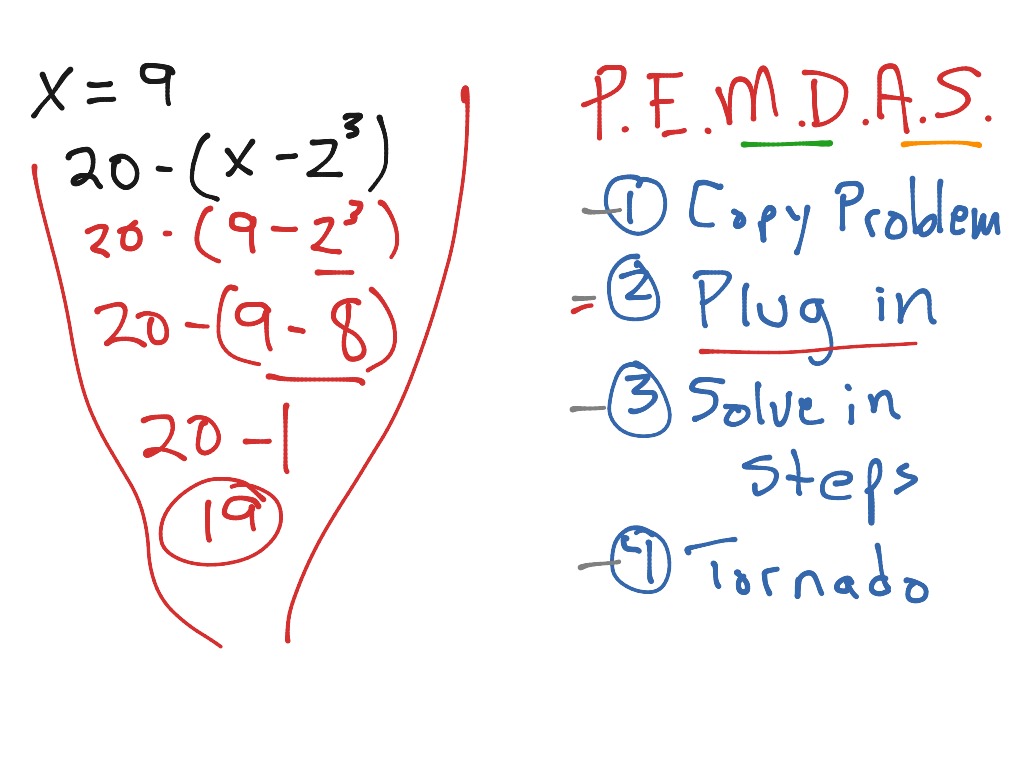 x = 9
20 - (x - 2³)
20 - (9 - 2³)
20 - (9 - 8)
20 - 1
19
P.E.M.D.A.S.
① Copy Problem
② Plug in
③ Solve in
Steps
④ Tornado